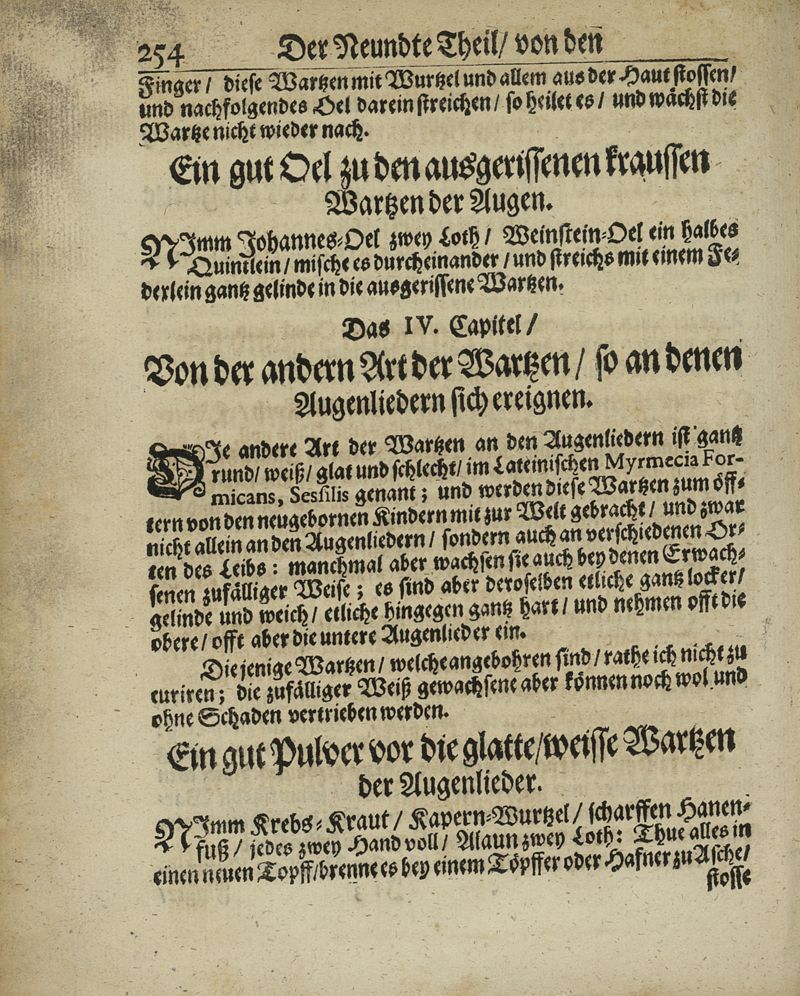 254 Der Neundte Theil/ von den
Finger/ diese Wartzen mit Wurtzel und allem aus der Haut stossen/
und nachfolgendes Oel darein streichen/ so heilet es/ und wächst die
Wartze nicht wieder nach.
Ein gut Oel zu den ausgerissenen kraussen
Wartzen der Augen.
NImm Johannes-Oel zwey Loth/ Weinstein-Oel ein halbes
Quintlein/ mische es durcheinander/ und streichs mit einem Fe-
derlein gantz gelinde in die ausgerissene Wartzen.
Das IV. Capitel/
Von der andern Art der Wartzen/ so an denen
Augenliedern sich ereignen.
DIe andere Art der Wartzen an den Augenliedern ist gantz
rund/ weiß/ glat und schlecht/ im Lateinischen Myrmecia For-
micans, Sessilis genant; und werden diese Wartzen zum öff-
tern von den neugebornen Kindern mit zur Welt gebracht/ und zwar
nicht allein an den Augenliedern/ sondern auch an verschiedenen Or-
ten des Leibs: manchmal aber wachsen sie auch bey denen Erwach-
senen zufälliger Weise; es sind aber deroselben etliche gantz locker/
gelinde und weich/ etliche hingegen gantz hart/ und nehmen offt die
obere/ offt aber die untere Augenlieder ein.
Diejenige Wartzen/ welche angebohren sind/ rathe ich nicht zu
curiren; die zufälliger Weiß gewachsene aber können noch wol und
ohne Schaden vertrieben werden.
Ein gut Pulver vor die glatte/ weisse Wartzen
der Augenlieder.
NImm Krebs-Kraut/ Kapern-Wurtzel/ scharffen Hanen-
fuß/ jedes zwey Hand voll/ Alaun zwey Loth: Thue alles in
einen neuen Topff/ brenne es bey einem Töpffer oder Hafner zu Asche/
stosse